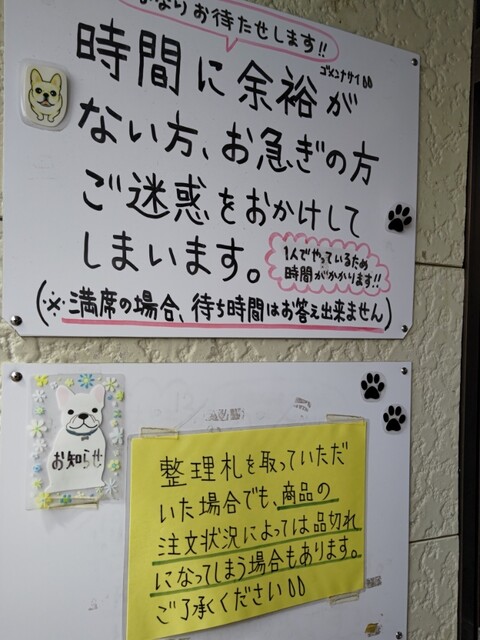 なりお待たせします!!
ゴメンナサイ
時間に余裕が
ない方、お急ぎの方
ご迷惑をおかけして
しまいます。
1人でやっているため
時間がかかります!!
(※満席の場合、待ち時間はお答え出来ません)
お知らせ
整理札を取っていただ
いた場合でも、商品の
注文状況によっては品切れ
になってしまう場合もあります。
ご了承ください